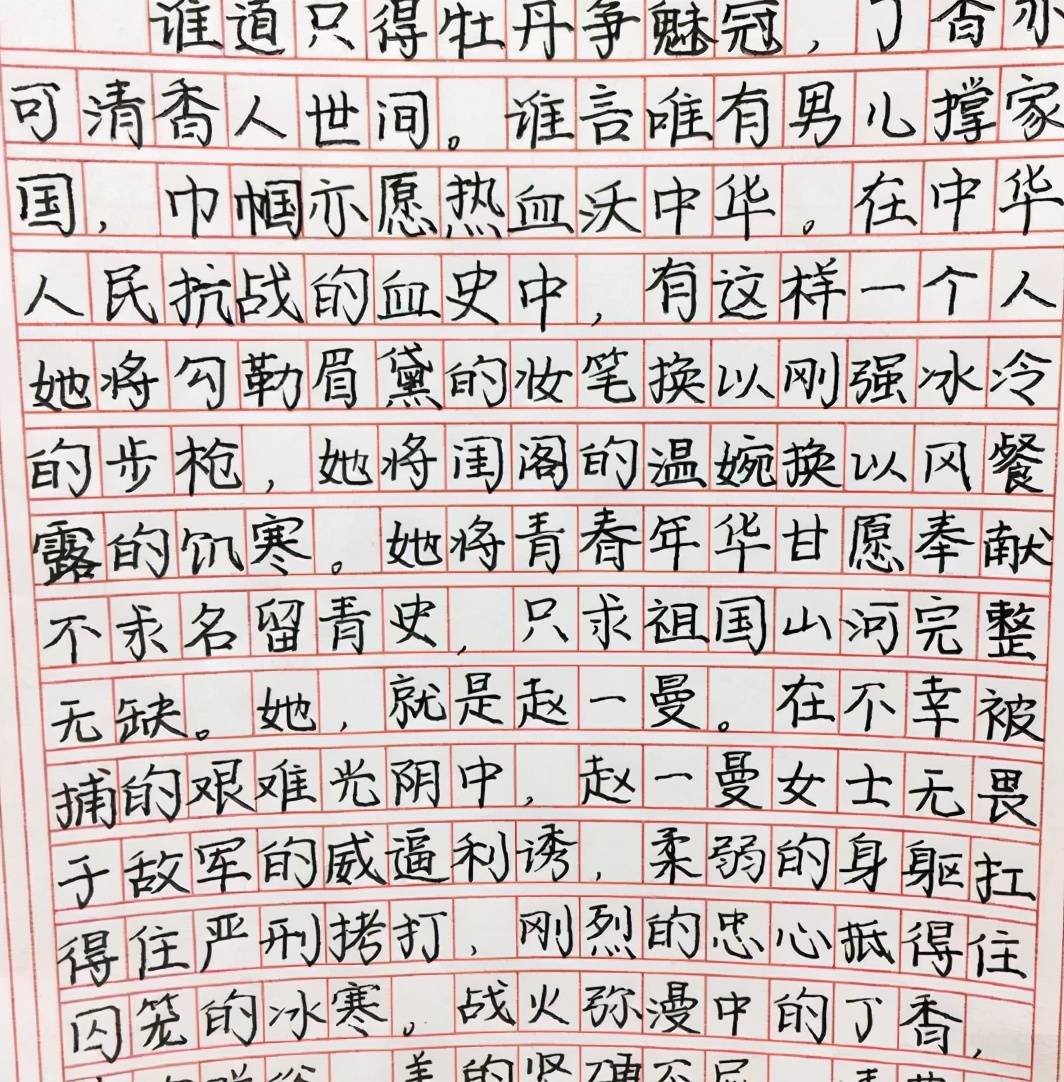 谁道只得牡丹争魅冠，丁香亦
可清香人世间。谁言唯有男儿撑家
国，巾帼亦愿热血沃中华。在中华
人民抗战的血史中，有这样一个人
她将勾勒眉黛的妆笔换以刚强冰冷
的步枪，她将闺阁的温婉换以风餐
露的饥寒。她将青春年华甘愿奉献
不求名留青史，只求祖国山河完整
无缺。她，就是赵一曼。在不幸被
捕的艰难光阴中，赵一曼女士无畏
于敌军的威逼利诱，柔弱的身躯扛
得住严刑拷打，刚烈的忠心抵得住
囚笼的冰寒。战火弥漫中的丁香，
的坚硬不屈